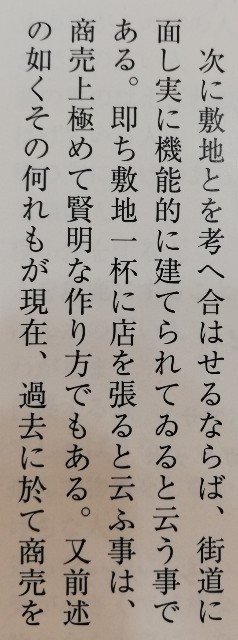 次に敷地とを考へ合はせるならば、街道に
面し実に機能的に建てられてゐると云う事で
ある。即ち敷地一杯に店を張ると云ふ事は、
商売上極めて賢明な作り方でもある。又前述
の如くその何れもが現在、過去に於て商売を